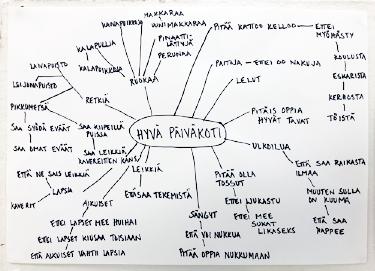 HYVÄ PÄIVÄKOTI
MAKKARAA
UUNIMAKKARAA
KANAPOIKKOJA
PINAATTI-
LÄTTYJÄ
PERUNAA
KALAPULLIA
KALAPUIKKOJA
RUOKAA
PITÄÄ KATTOO KELLOO
ETTEI
MYÖHÄSTY
KOULUSTA
ESKARISTA
KERHOSTA
TÖISTÄ
PAITOJA - ETTEI OO NAKUJA
LELUT
PITÄIS OPPIA
HYVÄT TAVAT
ULKOILUA
ETTÄ SAA RAIKASTA
ILMAA
MUUTEN SULLA
ON KUUMA
ETTÄ SAA
HAPPEE
PITÄÄ OLLA
TOSSUT
ETTEI LIUKASTU
ETTEI MEE
SUKAT
LIKASEKS
SÄNGYT
ETTÄ VOI NUKKUA
PITÄÄ OPPIA NUKKUMAAN
LEIKKIÄ
ETÄSAA TEKEMISTÄ
AIKUISET
ETTEI LAPSET MEE HUIHAI
ETTEI LAPSET KIUSAA TOISIAAN
ETTÄ AIKUISET VAHTII LAPSIA
LAPSIA
ETTÄ ME SAIS LEIKKIÄ
KAVERIT
RETKIÄ
LAIVAPUISTO
LEIJONAPUISTO
PIKKUMETSÄ
SAA SYÖDÄ EVÄÄT
SAA OMAT EVÄÄT
SAA KIIPEILLÄ
PUISSA
SAA LEIKKIÄ
KAVEREITTEN KANS